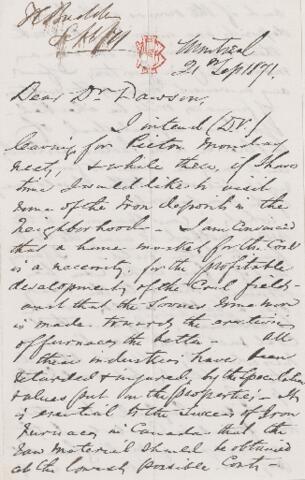 Sept 21/71
Montreal
21st Sep 1871.
Dear Dr. Dawson,
I intend (D.V.)
leaving for Pictou Monday
next, & while there, if I have
time I would like to visit
some of the Iron deposits in the
neighbourhood - I am convinced
that a home market for the Coal
is a necessity for the profitable
development of the Coal fields -
and that the sooner some move
is made towards the erection
of furnaces the better - All
these industries have been
retarded & injured by the speculative
values put on the properties - It
is essential to the success of Iron
Furnaces in Canada that the
raw material should be obtained
at the lowest possible Cost -